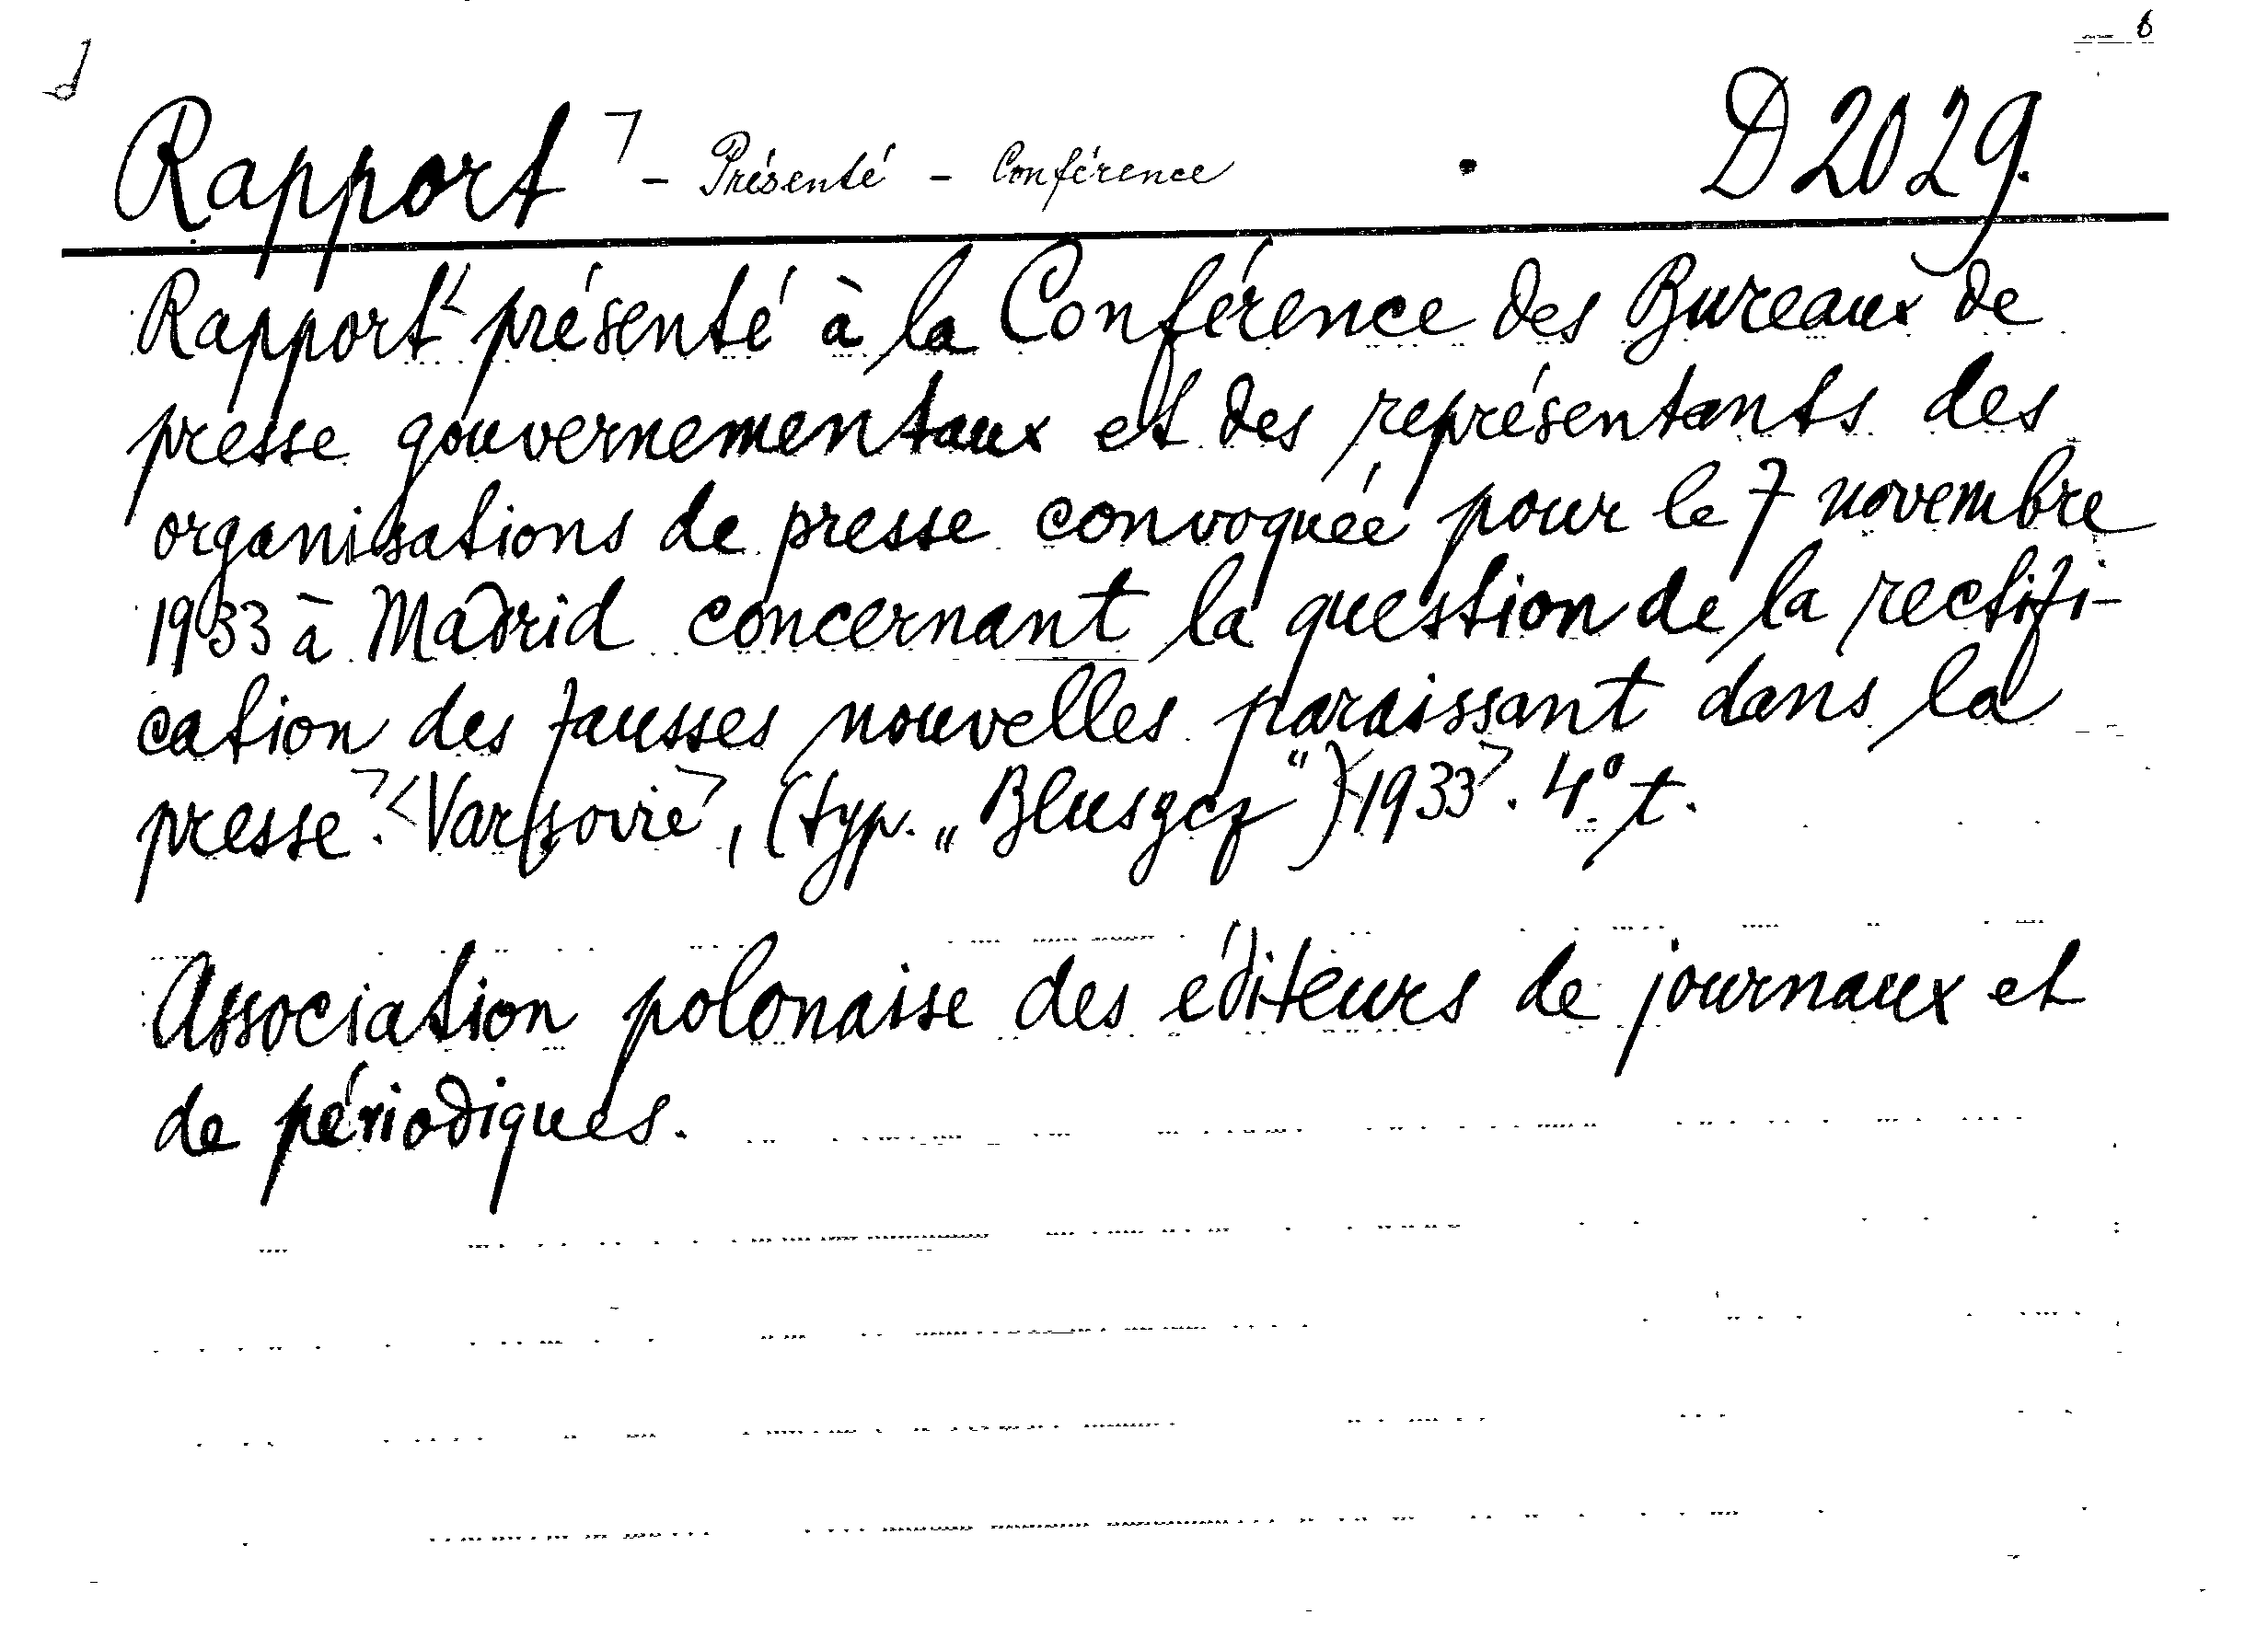 Rapport - Présenté - Conférence D 2029.
Rapport présenté à la Conférence des Bureaux de
presse gouvernementaux et des représentants des
organisations de presse convoquée pour le 7 novembre
1933 à Madrid concernant la question de la rectifi-
cation des fausses nouvelles paraissant dans la
presse. Varsovie, (typ. „Bluszcz") 1933. 4° t.
Association polonaise des éditeurs de journaux et
de périodiques.